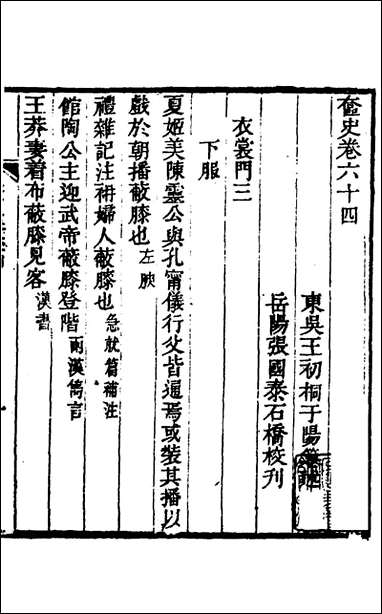 奩史卷六十四
東吳王初桐于陽
岳陽張國泰石橋校刊
衣裳門三
下服
夏姬美陳靈公與孔甯儀行父皆通焉或裝其播以
戲於朝播蔽膝也左腴
禮雜記注袡婦人蔽膝也急就篇補注
館陶公主迎武帝蔽膝登階兩漢雋言
王莽妻着布蔽膝見客漢書